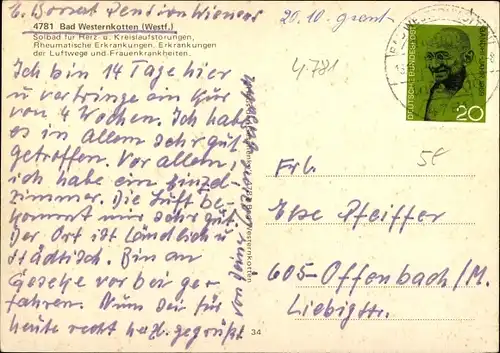 E. Borrat Pension Wiemers
4781 Bad Westernkotten (Westf.)
Solbad für Herz- u. Kreislaufstörungen,
Rheumatische Erkrankungen, Erkrankungen
der Luftwege und Frauenkrankheiten.
Ich bin 14 Tage hier
u verbringe ein Kur
von 4 Wochen. Ich habe
es in Allem sehr gut
getroffen. Vor allem,
ich habe ein Einzel-
zimmer. Die Luft be-
kommt mir sehr gut
Der Ort ist Ländlich u
städtisch. Bin an
Geseke vorbei ge-
fahren. Nun sei für
heute recht herzl. gegrüßt
von
34
20.10.
4781
DEUTSCHE BUNDESPOST
20
5E
Frl.
Else Pfeiffer
605-Offenbach/M.
Liebigstr.